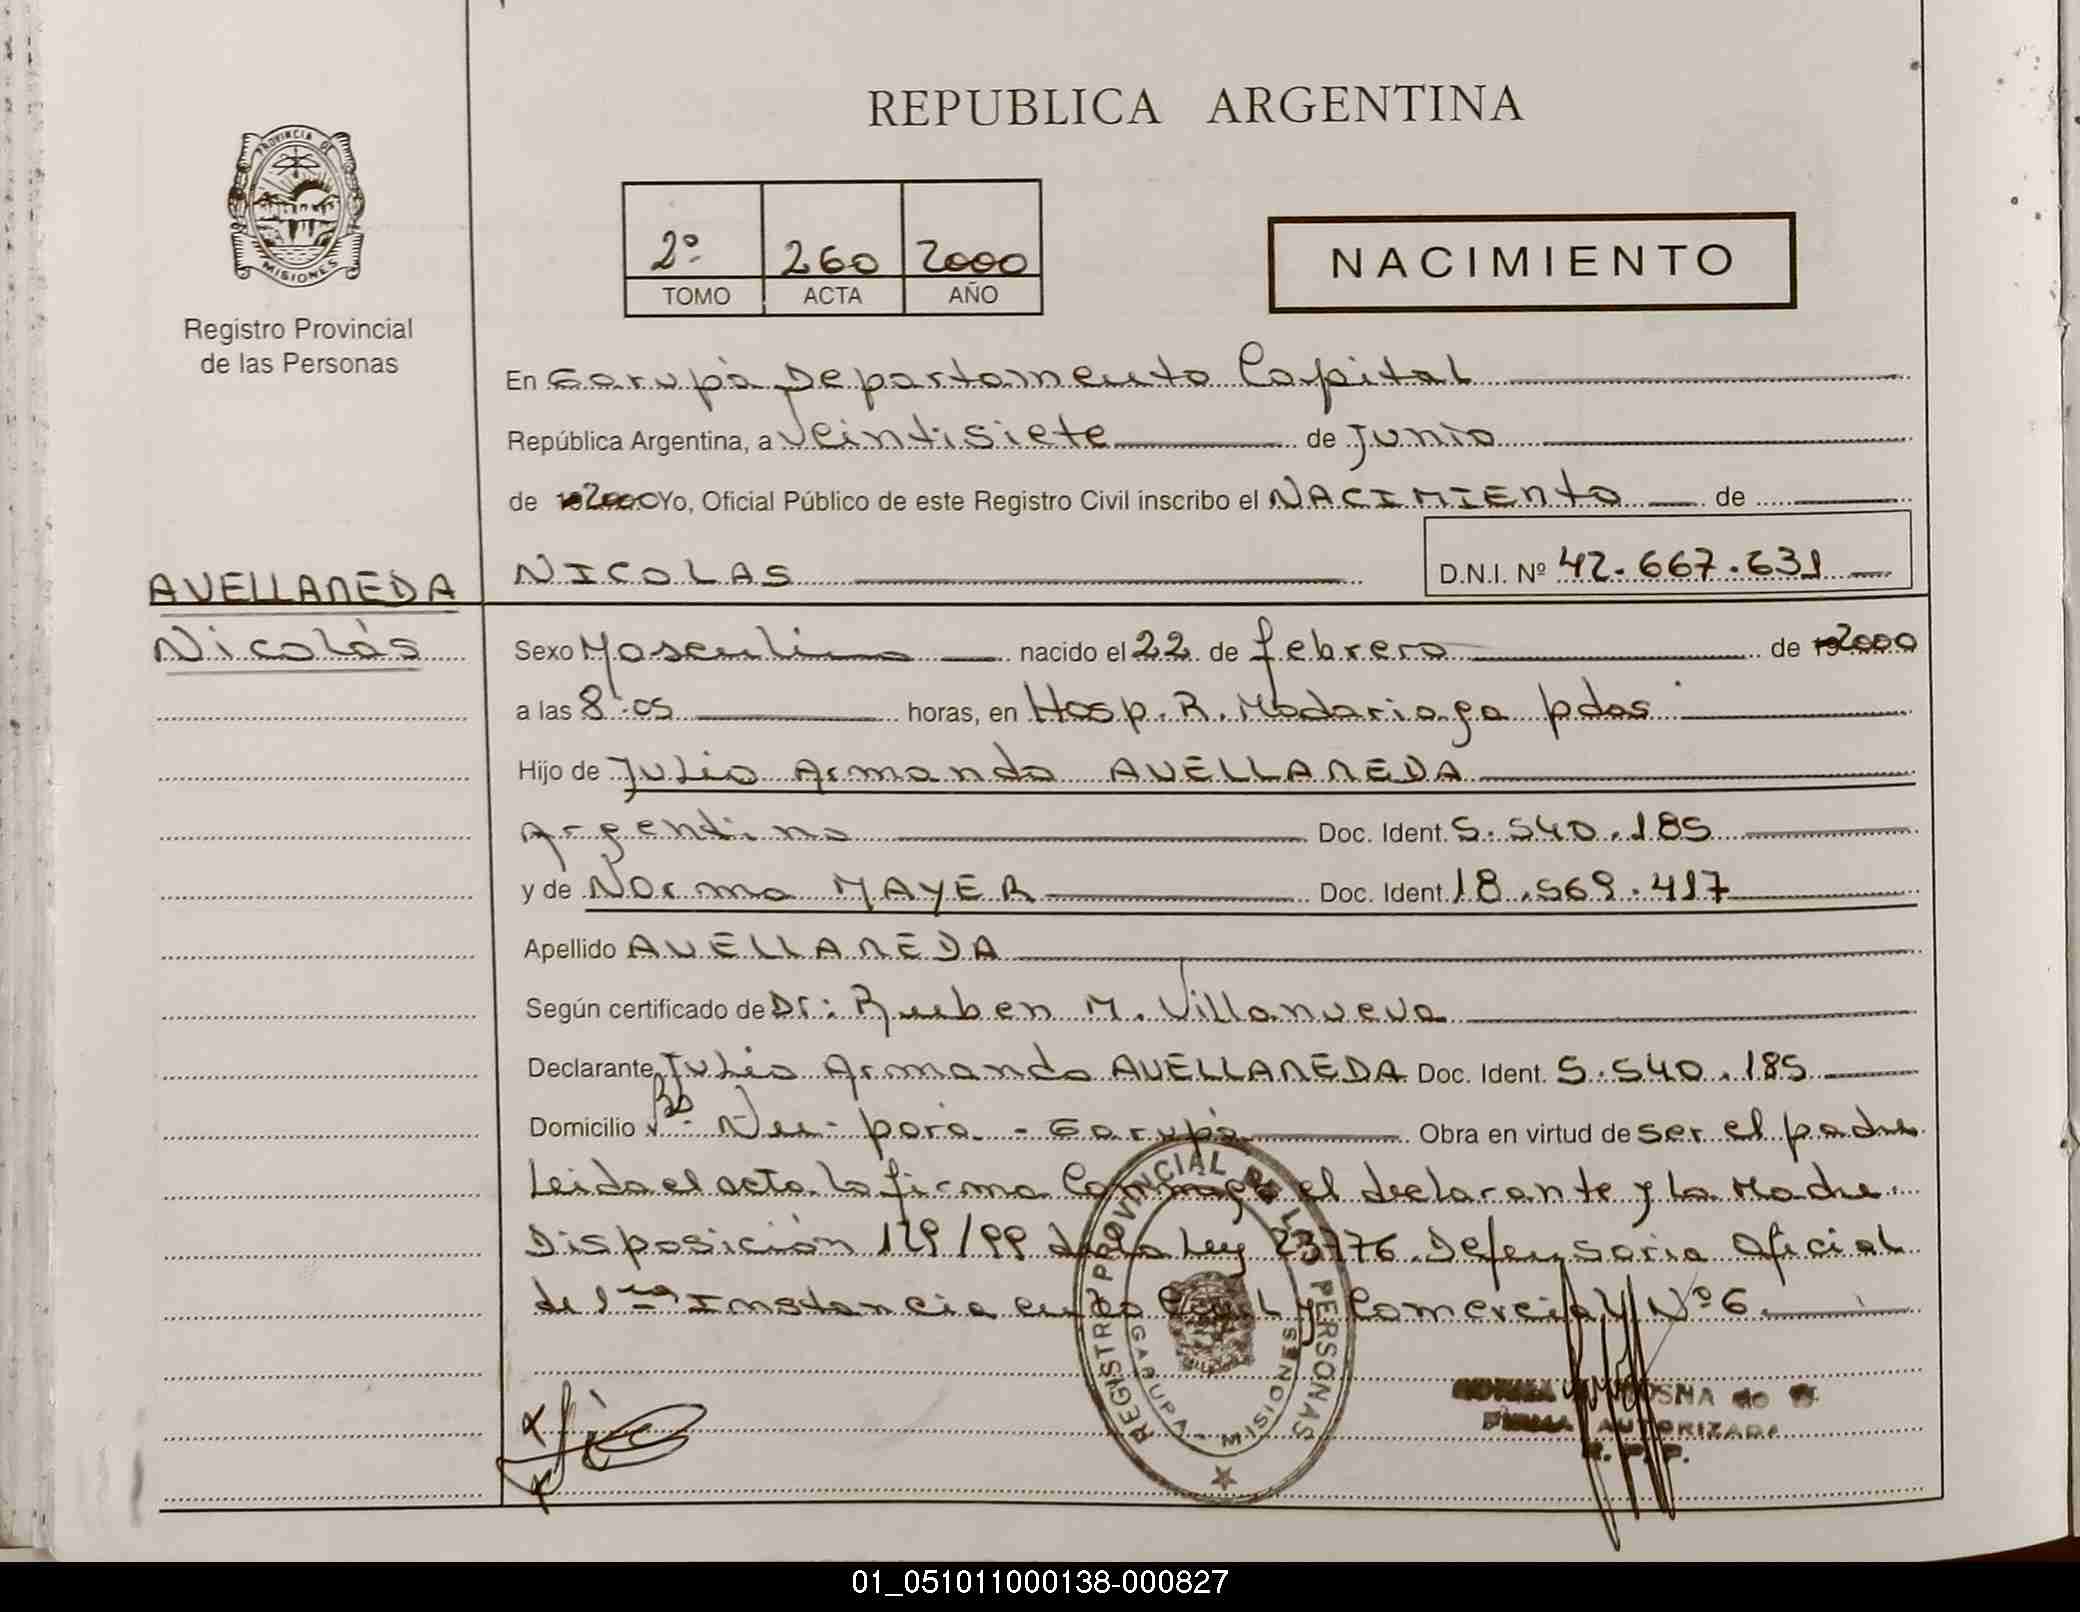 REPUBLICA ARGENTINA
PROVINCIA DE
MISIONES
Registro Provincial
de las Personas
2º 260 2000
TOMO ACTA AÑO
NACIMIENTO
En Garupá Departamento Capital
República Argentina, a Veintisiete de Junio
de 2000 Yo, Oficial Público de este Registro Civil inscribo el NACIMIENto de
NICOLAS D.N.I. Nº 42.667.631
AVELLANEDA
Nicolás
Sexo Masculino nacido el 22 de febrero de 2000
a las 8.05 horas, en Hosp. R. Madariaga pdas
Hijo de Julio Armando AVELLANEDA
Argentino Doc. Ident. 5.540.185
y de Norma MAYER Doc. Ident. 18.569.417
Apellido AVELLANEDA
Según certificado de Dr: Ruben M. Villanueva
Declarante Julio Armando AVELLANEDA Doc. Ident. 5.540.185
Domicilio Bº Ñu-pora - Garupá Obra en virtud de ser el padre
Leida el acta la firma Conmigo el declarante y la Madre.
Disposición 129/99 de la Ley 23776. Defensoria Oficial
de 1ra Instancia en lo Civil y Comercial Nº 6.
REGISTRO PROVINCIAL DE LAS PERSONAS
GARUPA - MISIONES
FIRMA AUTORIZADA
R. P. P.
01_051011000138-000827